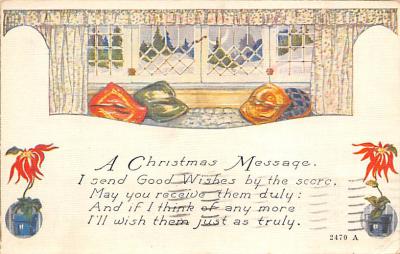 A Christmas Message.
I send Good Wishes by the score,
May you receive them duly:
And if I think of any more
I'll wish them just as truly.
2470 A